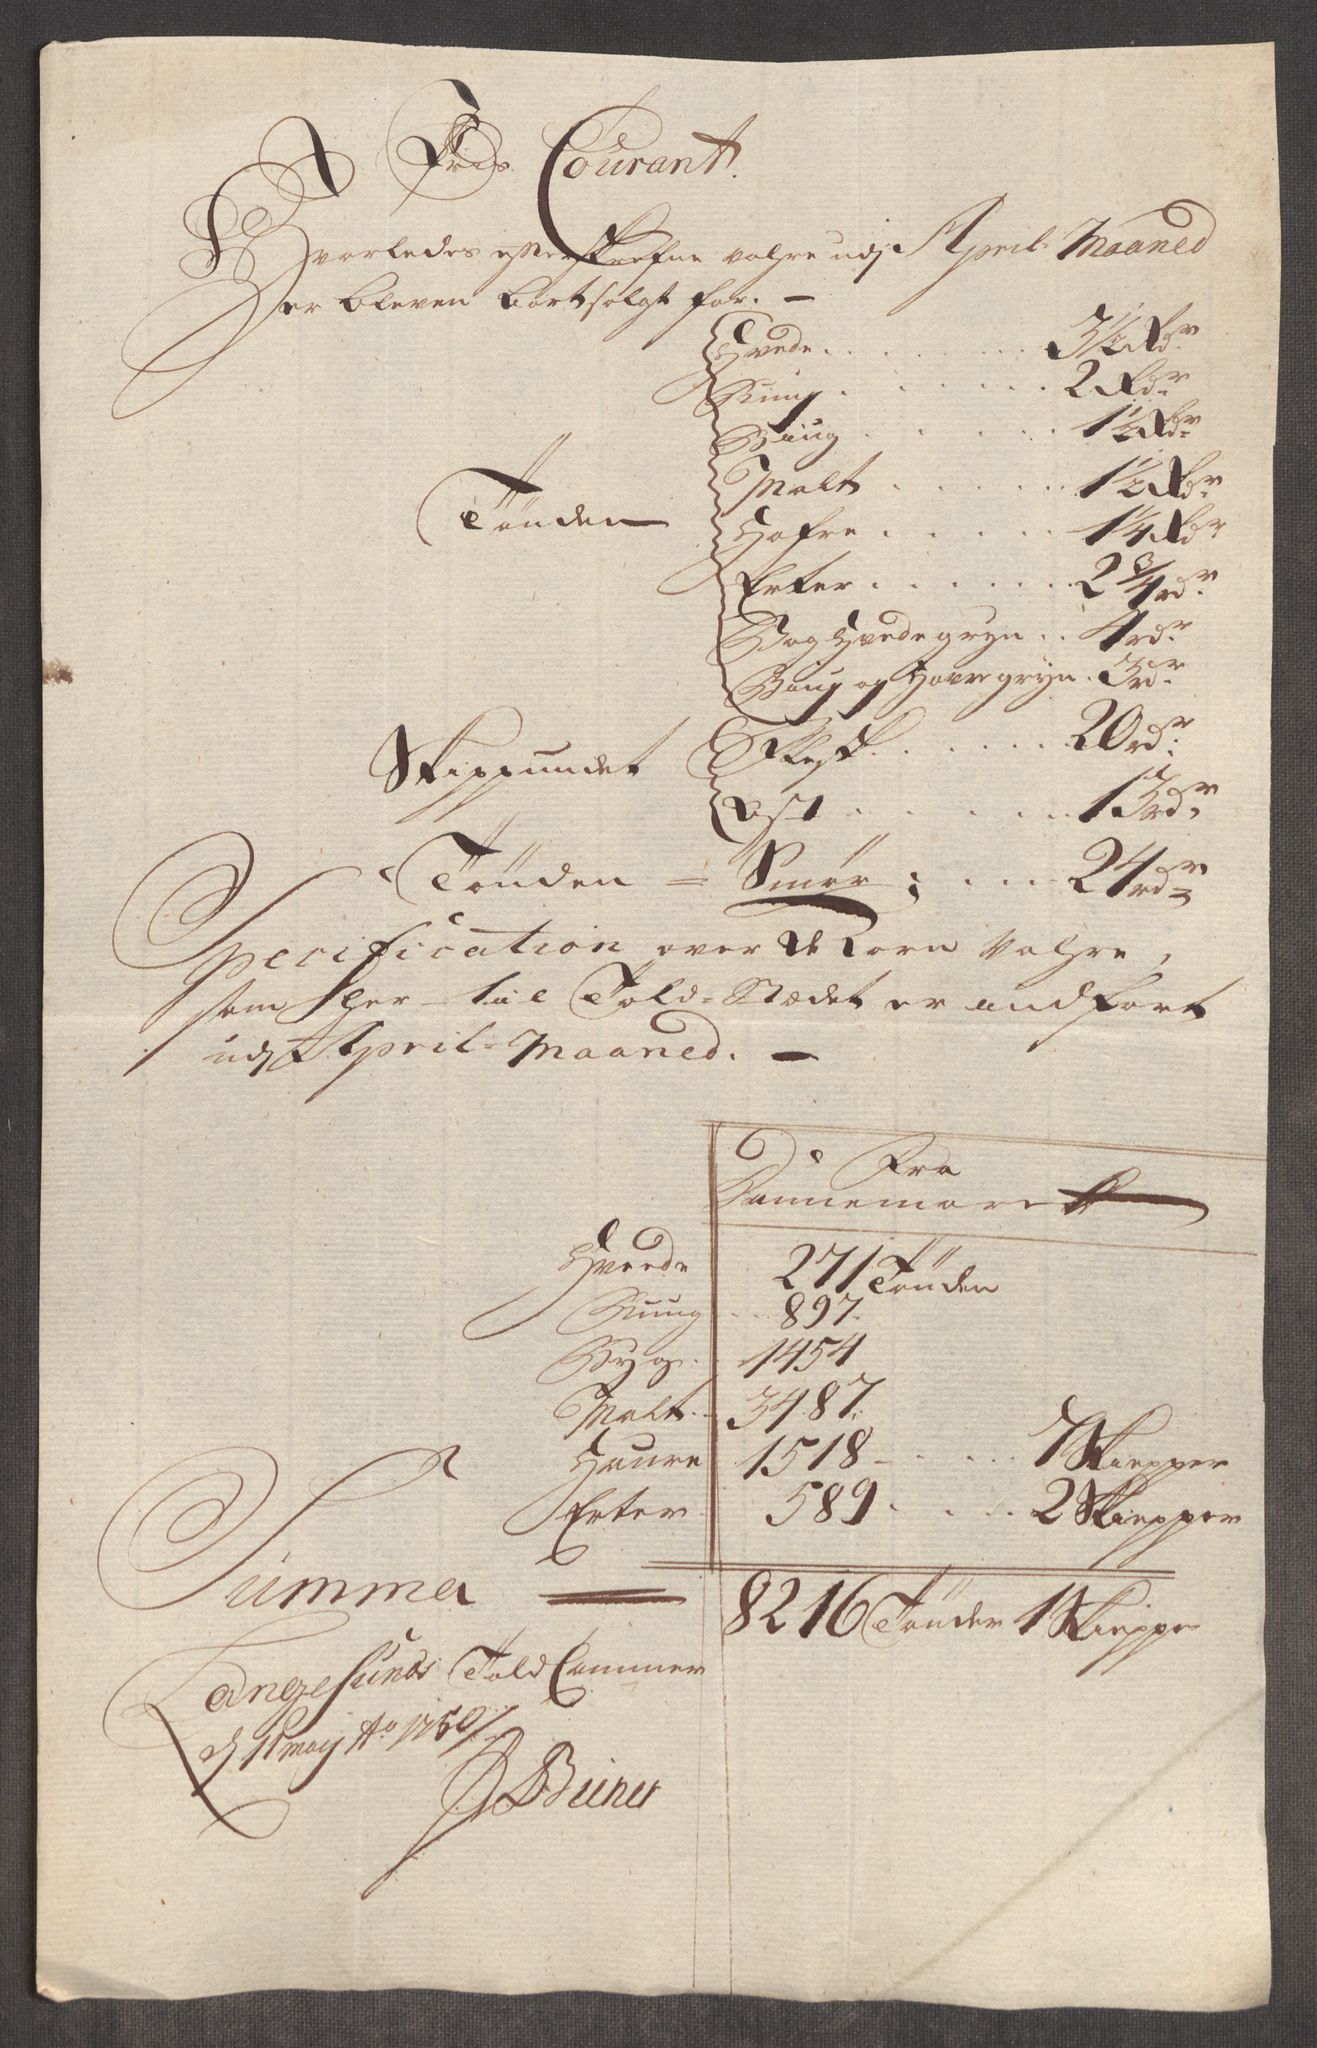 Pris Courant.
Hvorledes efterskrefne vahre udj April Maaned
er bleven bortsolgt for. —
Hvede . . . . . . 3½ Rdr
Rug . . . . . . 2 Rdr
Baug . . . . . . 1½ Rdr
Malt . . . . . . 1½ Rdr
Tönden
Hafre . . . . . 1¼ Rdr
Erter . . . . . . 2 3/4 rdr
Boghvedegryn . . 4 rdr
Baug og Havregryn . 3 rdr
Skippundet
Flesk . . . . . . 20 rdr
Ost . . . . . . 13 rdr
Tönden = Smør ; . . . 24 rdr
Specification over de Korn Vahre,
som her til Told-Stædet er indfört
udj April-Maaned. —
Fra
Dannemarck
Hveede 271 Tönder
Rug . . 897.
Byg . 1454
Malt . . 3487.
Haure 1518 . . . . 7 Skiepper
Erter 589 . . . . 2 Skiepper
Summa 8216 Tönder 1 Skieppe
Langesunds Told Cammer
d 1 maij Ao 1750